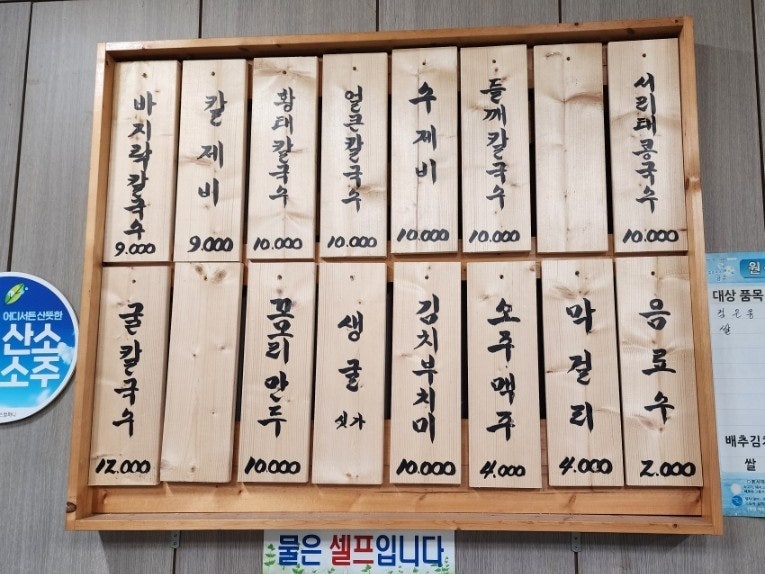 바지락칼국수
9.000
칼제비
9.000
황태칼국수
10.000
얼큰칼국수
10.000
수제비
10.000
들깨칼국수
10.000
서리태콩국수
10.000
굴칼국수
12.000
꼬모리만두
10.000
생굴
싯가
김치부치미
10.000
소주맥주
4.000
막걸리
4.000
음료수
2.000
어디서든 산뜻한
산소
소주
원
대상 품목
쌀
배추김치
쌀
물은 셀프입니다